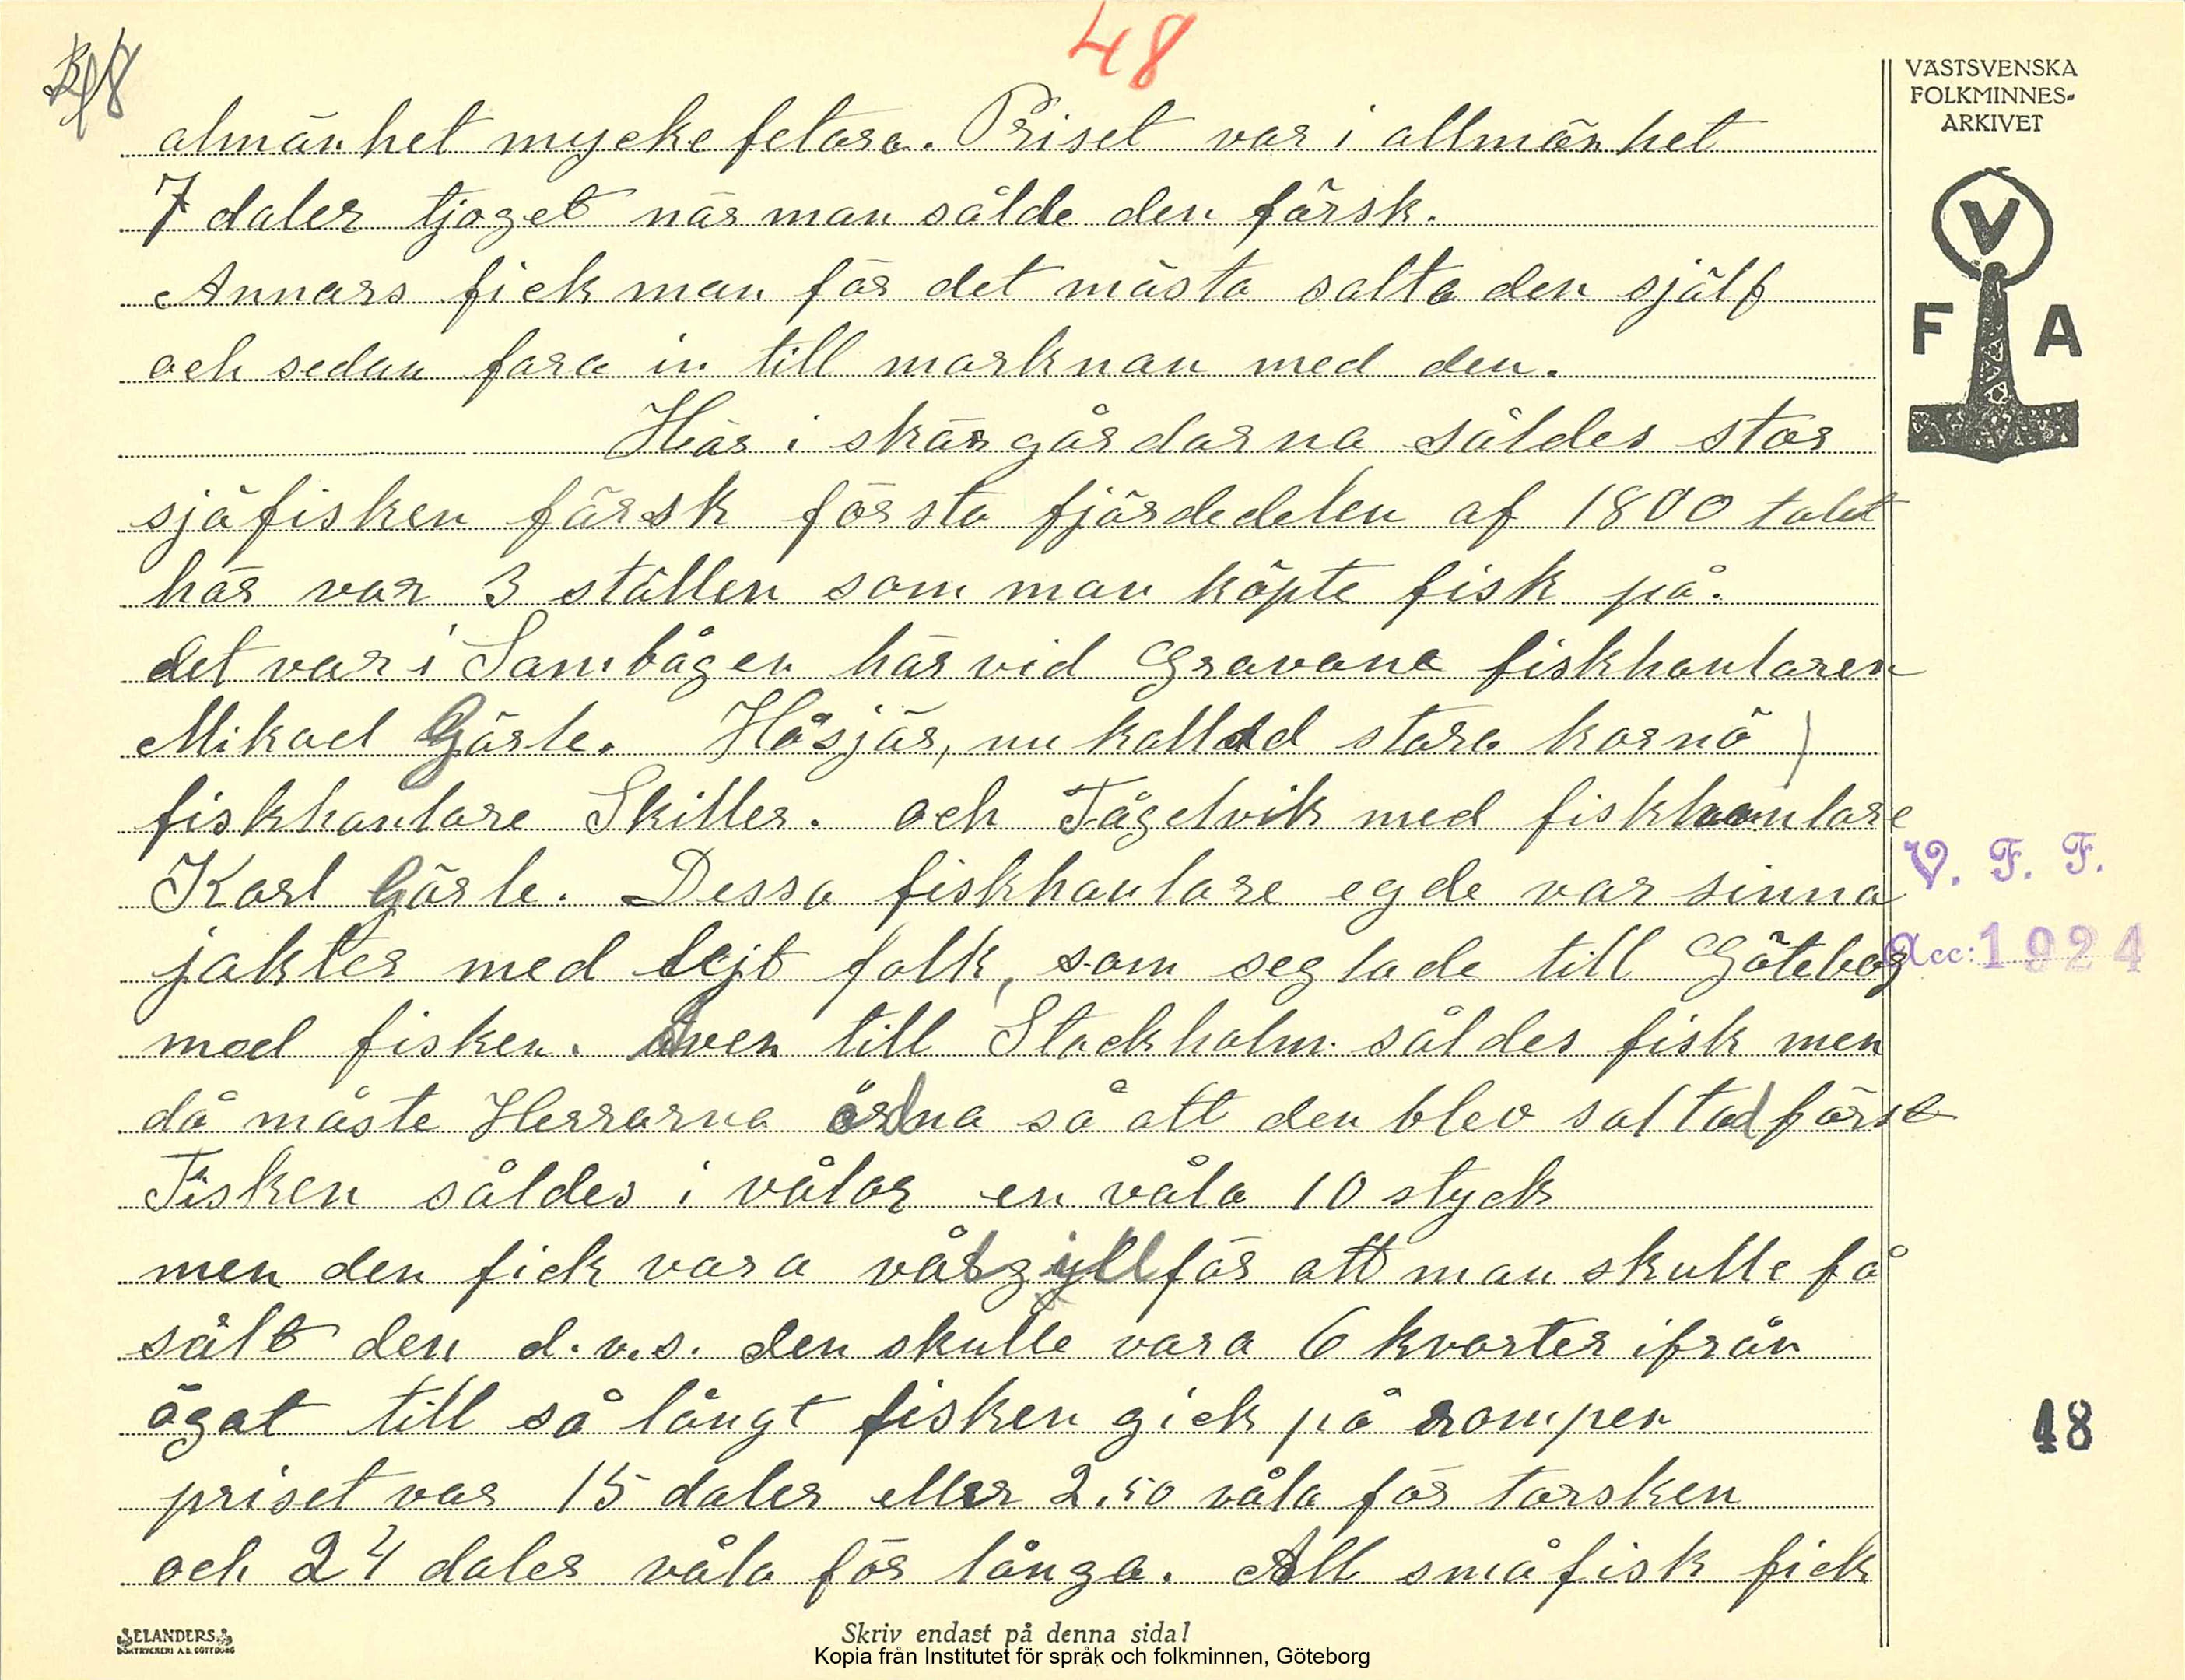 48
VÄSTSVENSKA
FOLKMINNES-
ARKIVET
V
F A
almänhet mycke fetare. Priset var i allmänhet
7 daler tjoget när man sålde den färsk.
Annars fick man för det mästa salta den själf
och sedan fara in till marknan med den.
Här i skärgårdarna såldes stor
sjöfisken färsk första fjärdedelen af 1800 talet
här var 3 ställen som man köpte fisk på.
det var i Sambågen här vid Gravane fiskhanlaren
Mikael Gärle. Håsjär, nu kallad stora kornö
fiskhanlare Skiller. och Tågelvik med fiskhanlare
Karl Gärle. Dessa fiskhanlare egde var sinna
jakter med lejt folk, som seglade till Götebog
med fisken. även till Stockholm såldes fisk men
då måste Herrarna ordna så att den blev saltad först
Fisken såldes i vålar en våla 10 styck
men den fick vara för att man skulle få
sålt den d.v.s. den skulle vara 6 kvarter ifrån
ögat till så långt fisken gick på rompen
priset var 15 daler eller 2.50 våla för torsken
och 24 daler våla för långa. All småfisk fick
V. F. F.
Acc: 1924
48
ELANDERS
BOKTRYCKERI A.B. GÖTEBORG
Skriv endast på denna sida!
Kopia från Institutet för språk och folkminnen, Göteborg